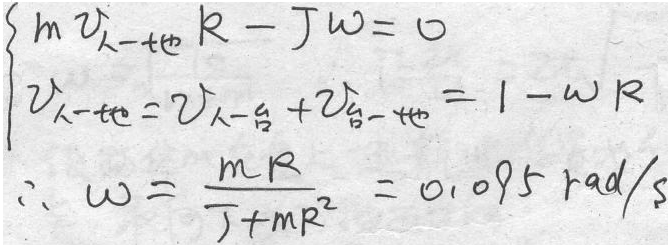 m v人-地 R - Jω = 0
v人-地 = v人-台 + v台-地 = 1 - ωR
∴ ω = mR / (J + mR²) = 0.095 rad/s